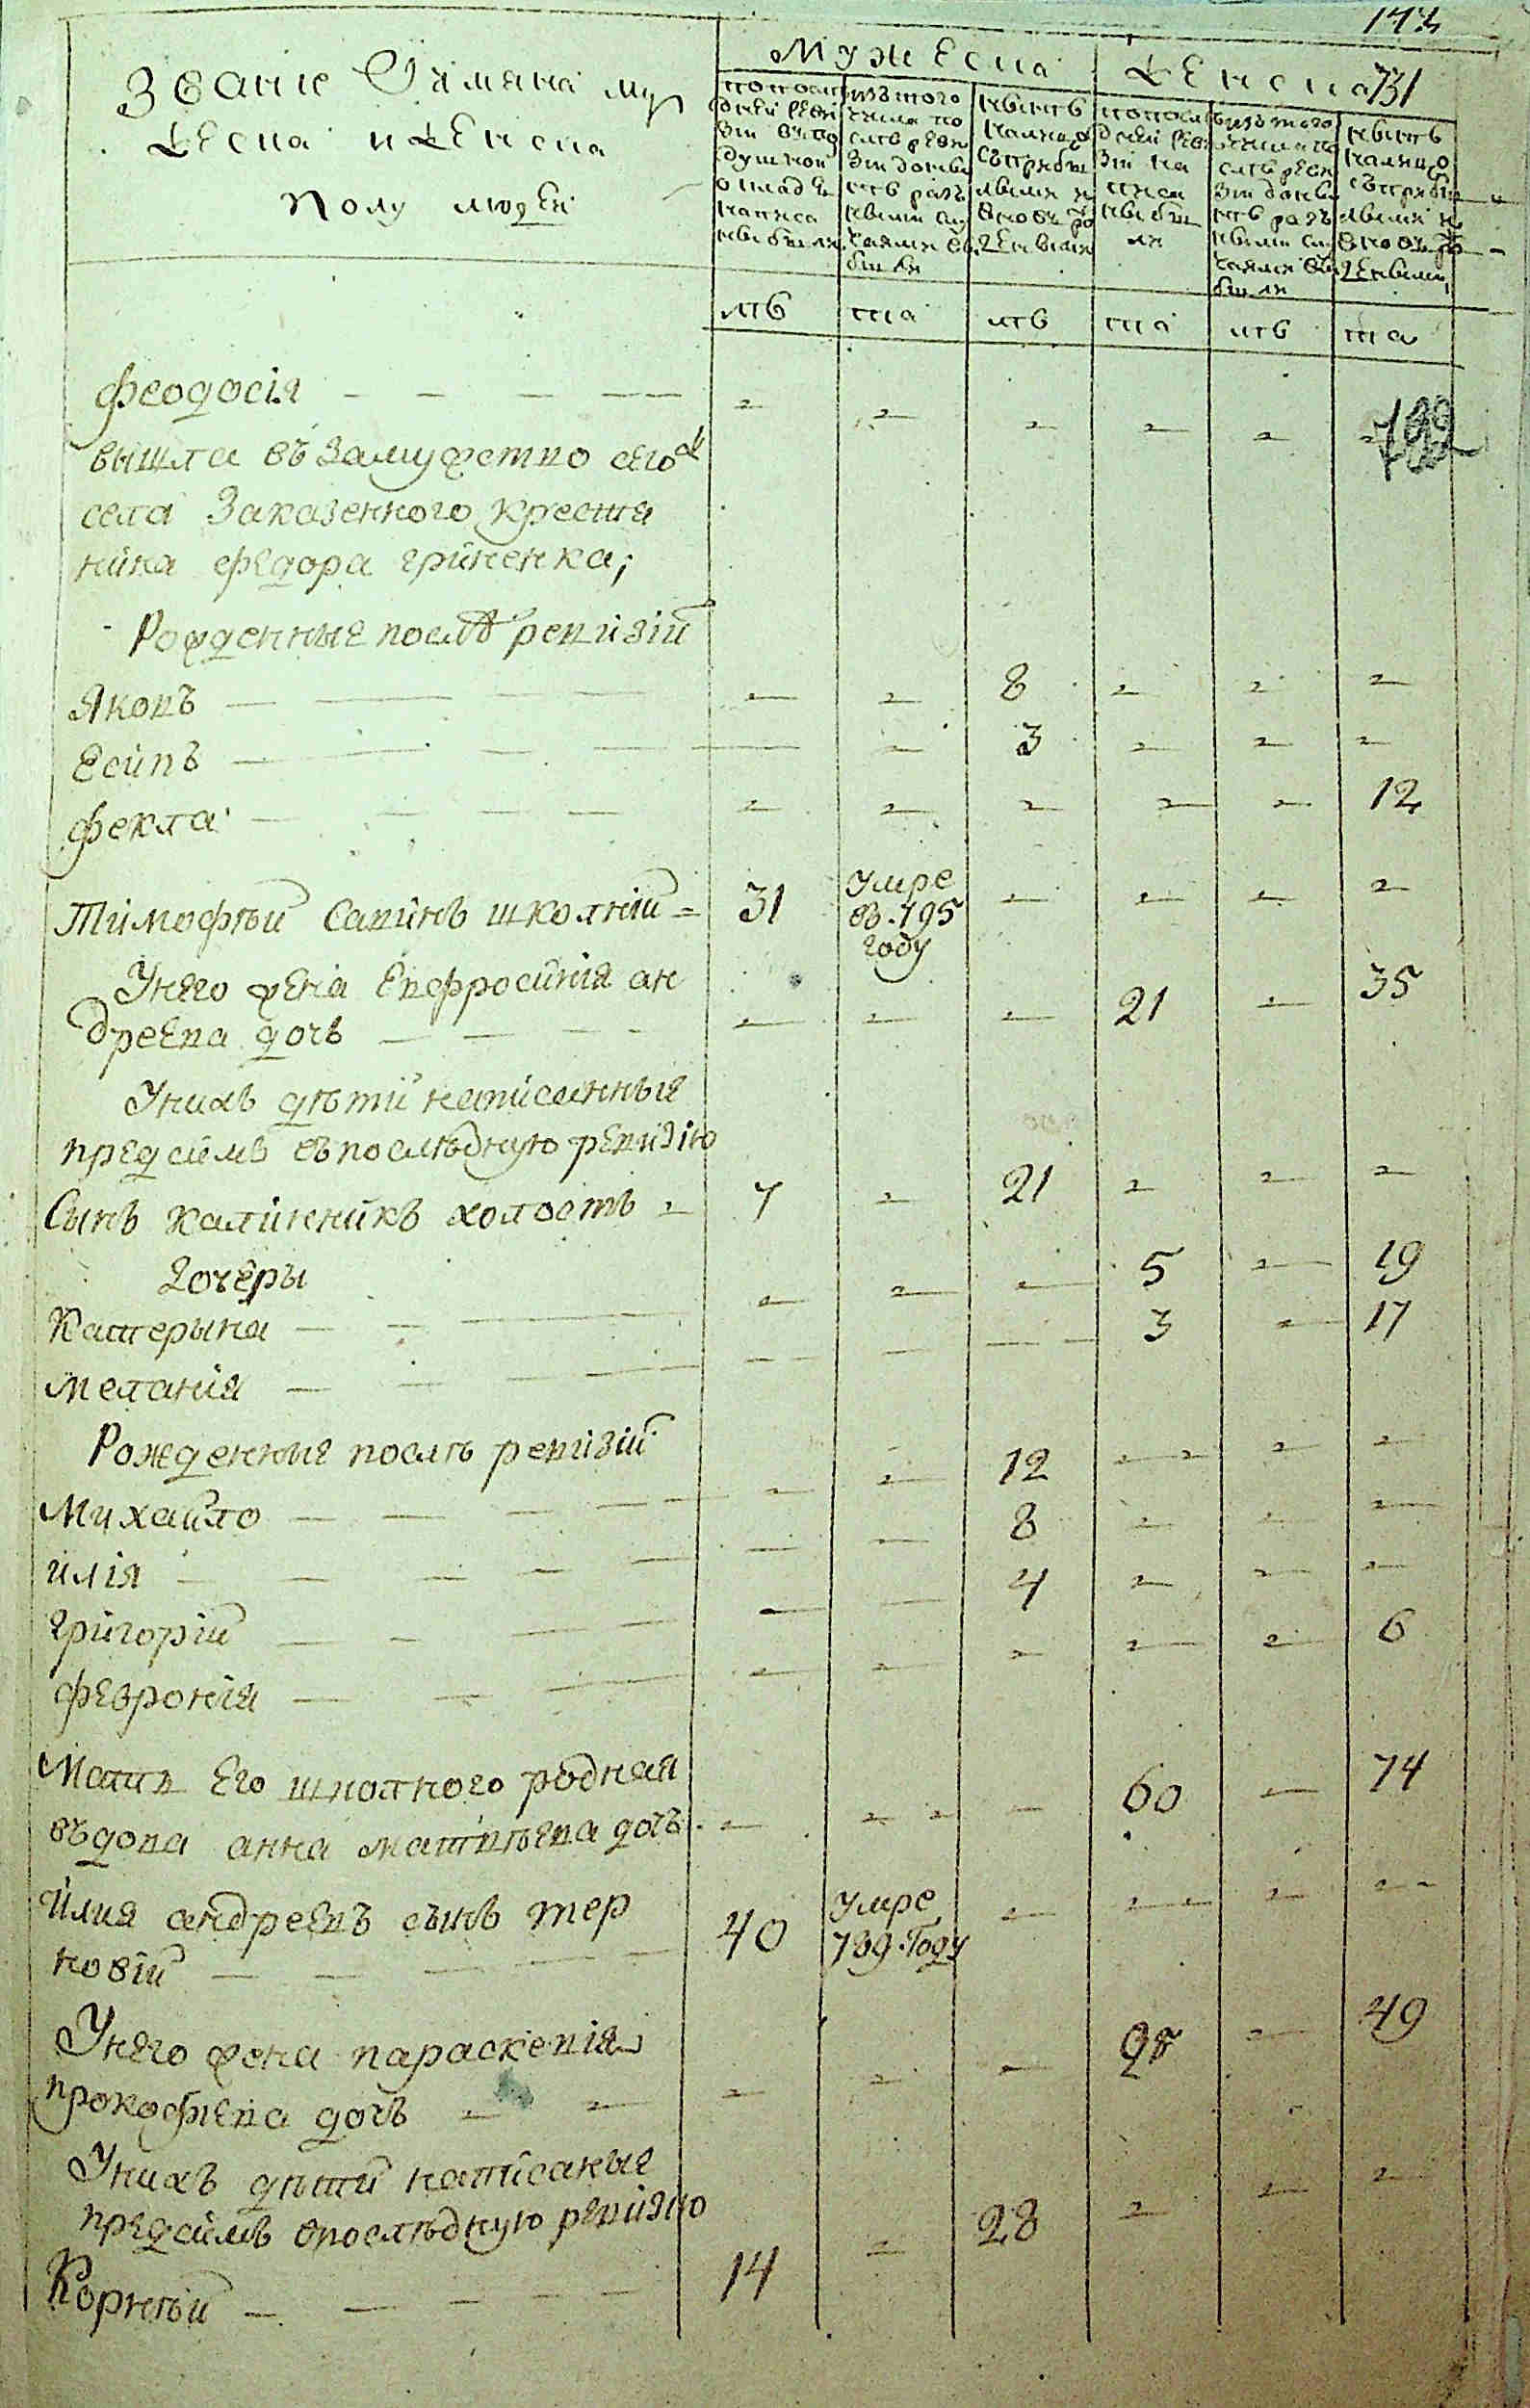 143
731
Звание Имяна му
жеска и женска
полу людей
Мужеска
Женска
по после
дней реви
зии въ по
душной
оклад
написа
ны были
изъ того
числа по
слѣ реви
зии
разъ
ными слу
чаями
были
нынѣ
на лицо
съ прибы
лыми и
вновь ро
жденыма
по после
дней реви
зии на
писа
ны бы
ли
изъ того
числа по
слѣ реви
зии
разъ
ными слу
чаями
были
нынѣ
на лицо
съ прибы
лыми и
вновь ро
ждеными
лѣ та лѣ та лѣ та
Феодосія
вышла въ замужство сего ж
села Заказенного крестья
нина Федора Гриненка;
Рожденные послѣ ревизій
Яковъ 8
Есипъ 3
Фекла 12
Тимофѣй Савинъ школній 31 умре
въ 795
году
У него жена Евфросинія ан
дреева дочь 21 35
У нихъ дѣти написанныя
предсимъ въ послѣдную ревизію
Сынъ Калинникъ холостъ 7 21
Дочеры
Катерына 5 19
Меланія 3 17
Рожденныя послѣ ревизій
Михайло 12
Илія 8
Григорій 4
Феврония 6
Мать его школного родная
въдова Анна Матвѣева дочь 60 74
Илия Андреевъ сынъ Тер
новій 40 умре
789 году
У него жена Параскевія
Прокофiева дочь 49
У нихъ дѣти написаные
предсимъ впослѣдную ревизию
Корнѣй 14 28